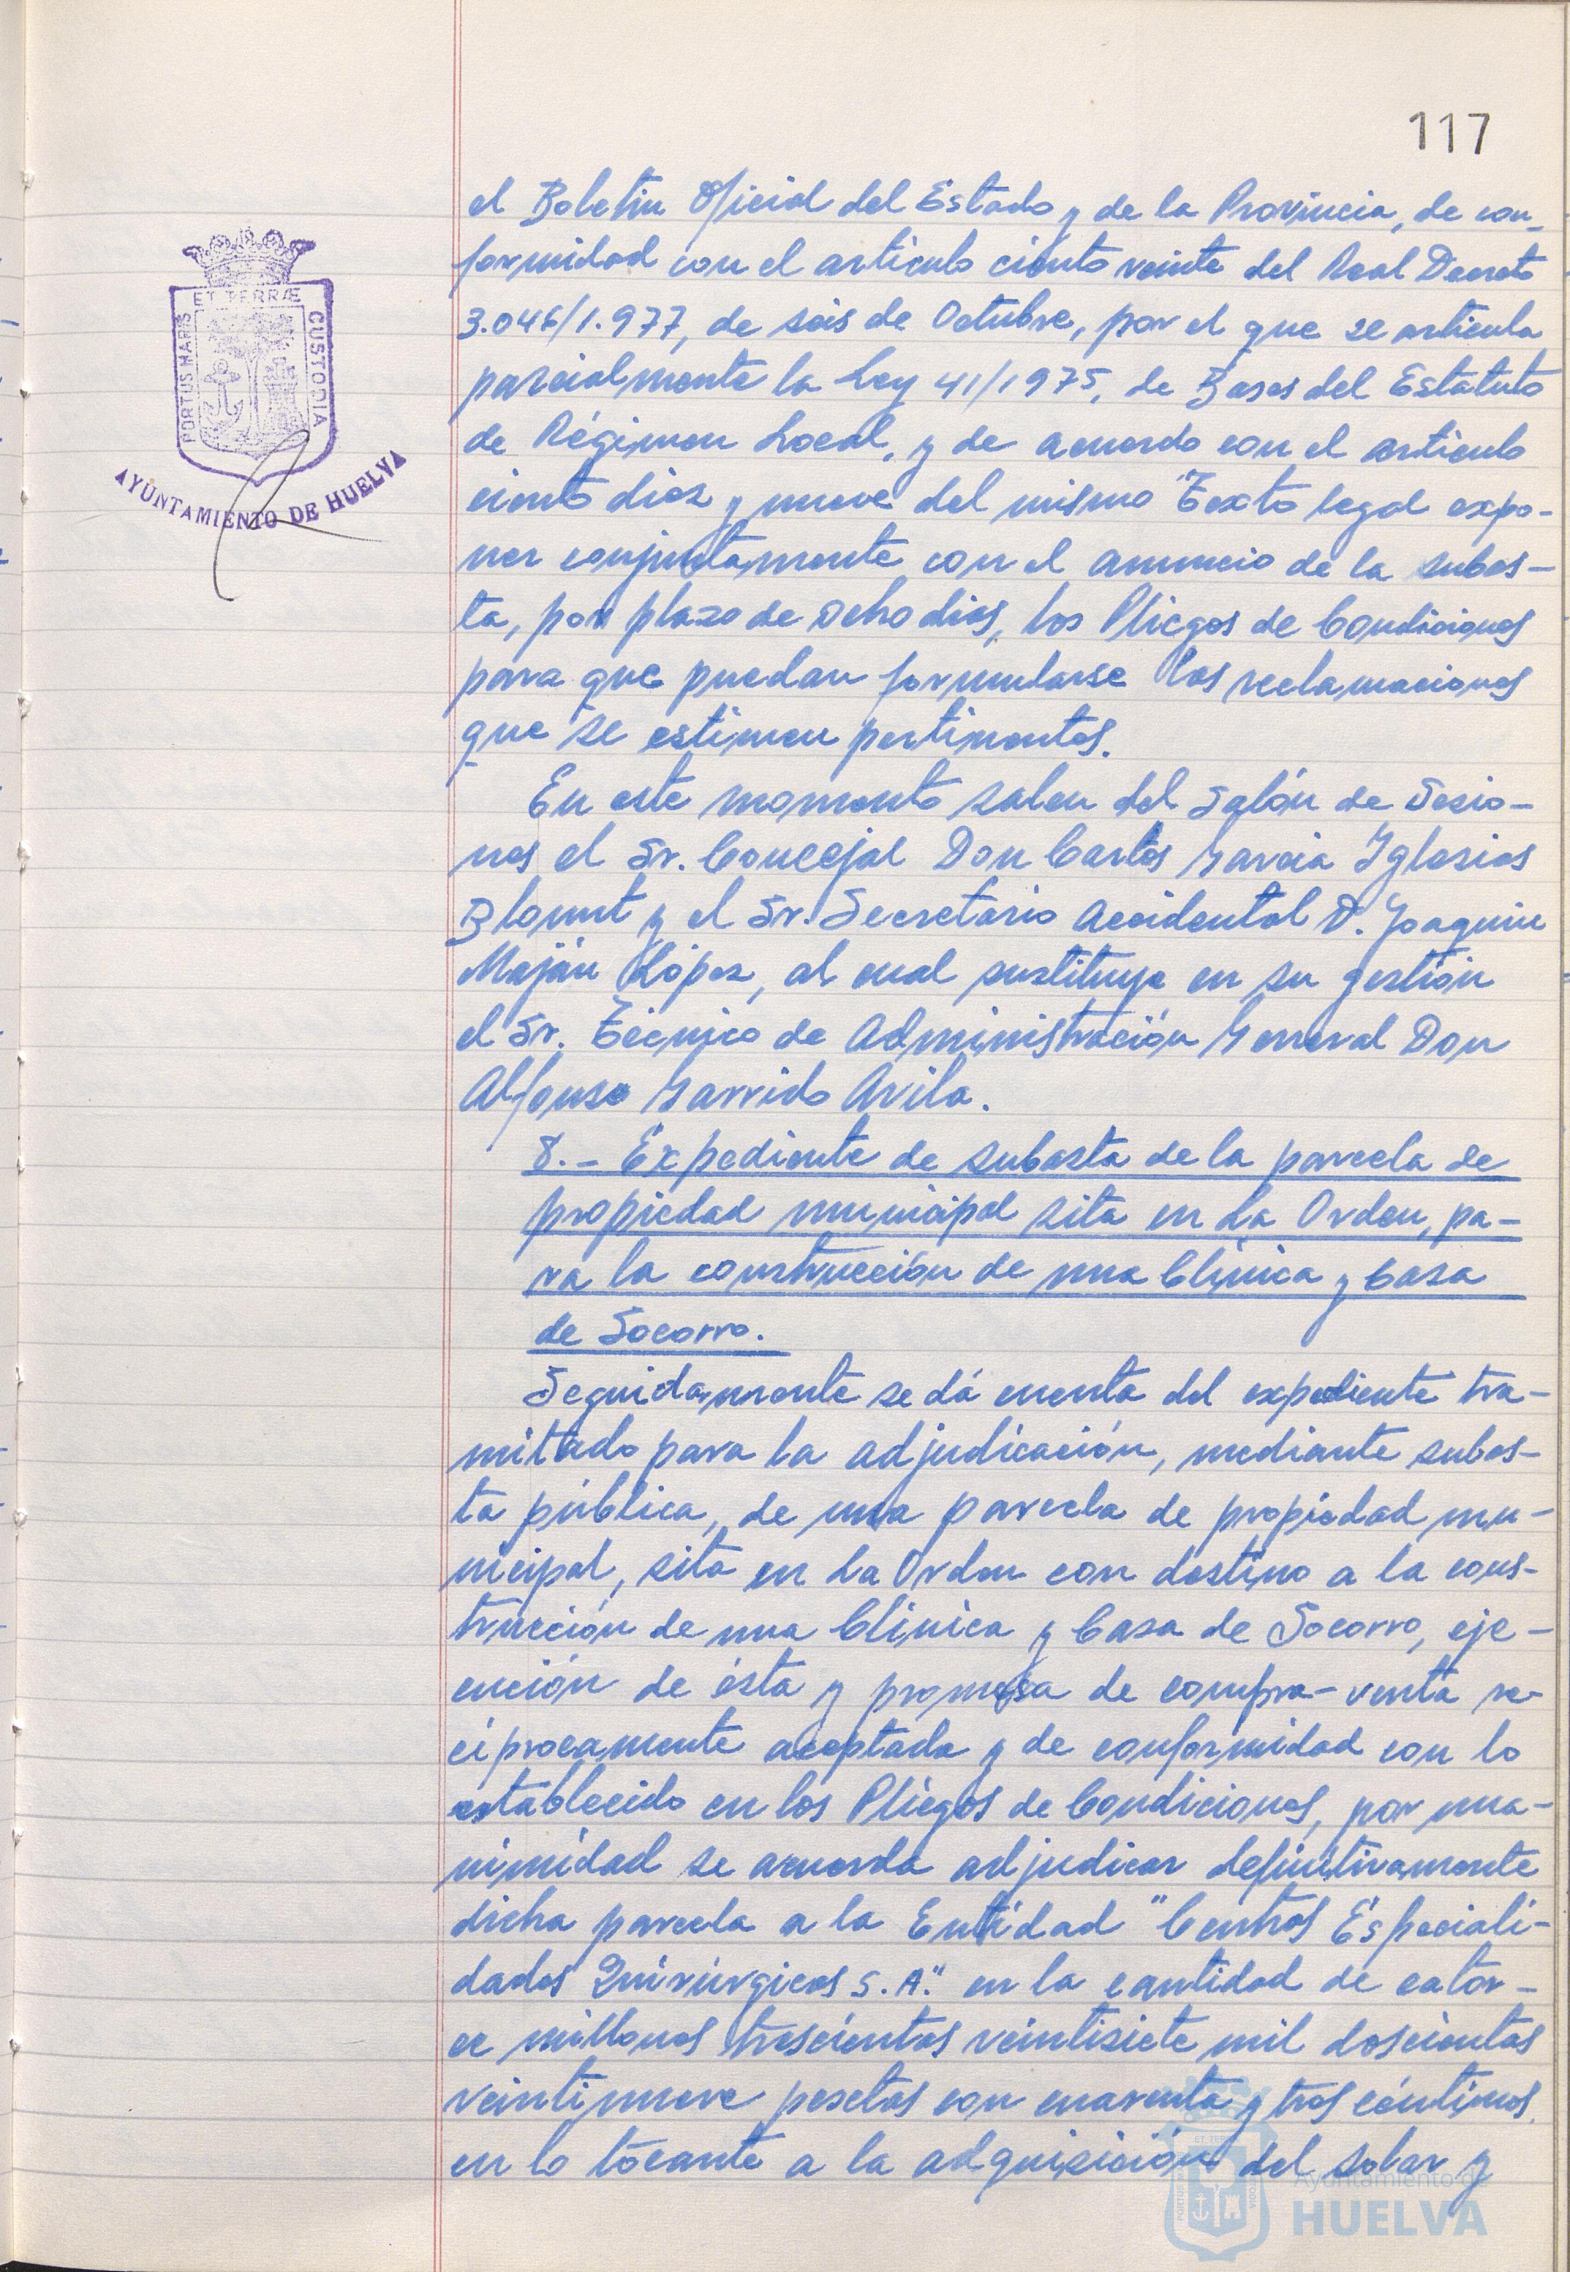 117
el Boletin Oficial del Estado y de la Provincia, de con-
formidad con el articulo ciento veinte del Real Decreto
3.046/1.977, de seis de Octubre, por el que se articula
parcialmente la Ley 41/1975, de Bases del Estatuto
de Régimen Local, y de acuerdo con el articulo
ciento diez y nueve del mismo Texto legal expo-
ner conjuntamente con el anuncio de la subas-
ta, por plazo de ocho dias, los Pliegos de Condiciones
para que puedan formularse las reclamaciones
que se estimen pertinentes.
En este momento salen del Salón de Sesio-
nes el Sr. Concejal Don Carlos Garcia Iglesias
Blount y el Sr. Secretario Accidental D. Joaquin
Maján López, al cual sustituye en su gestión
el Sr. Técnico de Administración General Don
Alfonso Garrido Avila.
8.- Expediente de subasta de la parcela de
propiedad municipal sita en La Orden, pa-
ra la construcción de una Clinica y Casa
de Socorro.
Seguidamente se dá cuenta del expediente tra-
mitado para la adjudicación, mediante subas-
ta pública, de una parcela de propiedad mu-
nicipal, sita en La Orden con destino a la cons-
trucción de una Clinica y Casa de Socorro, eje-
cución de ésta y promesa de compra-venta re-
ciprocamente aceptada y de conformidad con lo
establecido en los Pliegos de Condiciones, por una-
nimidad se acuerda adjudicar definitivamente
dicha parcela a la Entidad "Centros Especiali-
dades Quirúrgicas S.A." en la cantidad de cator-
ce millones trescientas veintisiete mil doscientas
veintinueve pesetas con cuarenta y tres céntimos,
en lo tocante a la adquisición del solar y
ET TERRÆ
PORTUS MARIS
CUSTODIA
AYUNTAMIENTO DE HUELVA
Ayuntamiento de
HUELVA